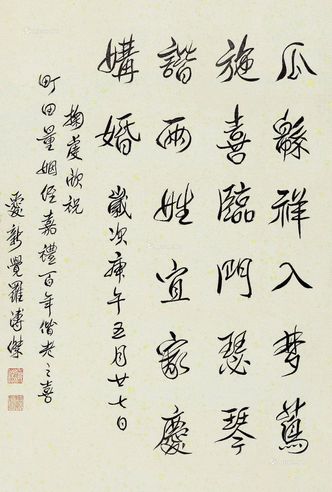 瓜緜祥入夢蔦
施喜臨門瑟琴
諧兩姓宜家慶
媾婚 歲次庚午五月廿七日
掬虔欣祝
町田量姻侄嘉禮百年偕老之喜
愛新覺羅溥傑